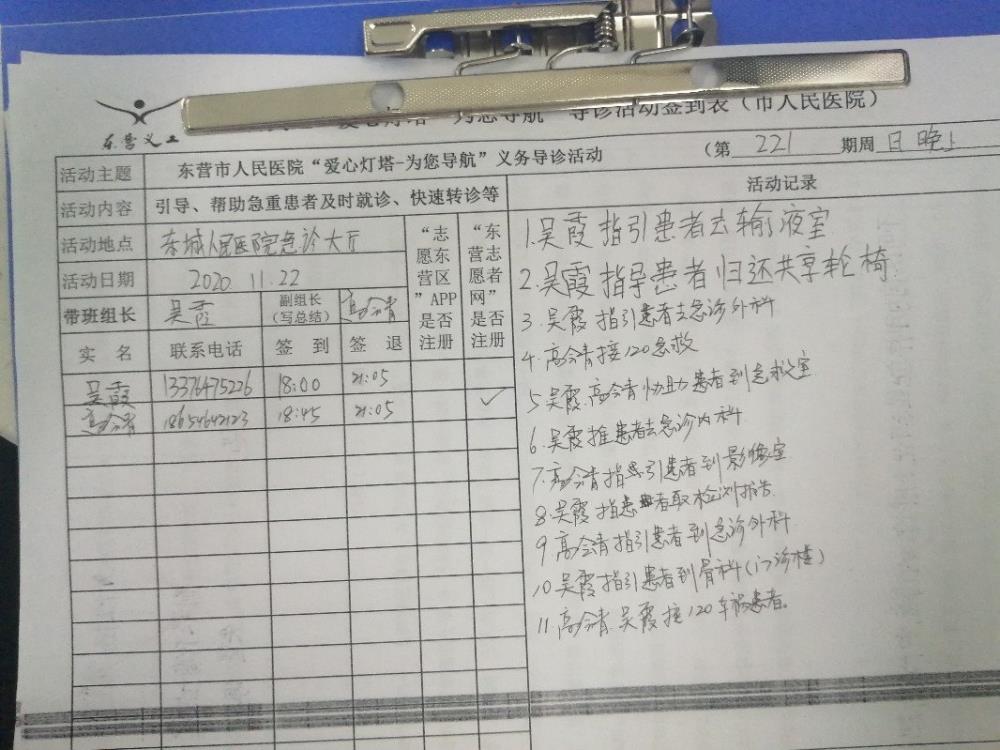 爱心灯塔 为您导航 导诊活动签到表（市人民医院）
东营义工
活动主题 东营市人民医院“爱心灯塔-为您导航”义务导诊活动 （第 221 期周 日 晚上
活动内容 引导、帮助急重患者及时就诊、快速转诊等 活动记录
活动地点 东城人民医院急诊大厅
活动日期 2020 11.22
带班组长 吴霞 副组长（写总结） 高会青
“志愿东营区”APP是否注册
“东营志愿者网”是否注册
实名 联系电话 签到 签退
吴霞 13376475226 18:00 21:05
高会青 18654642123 18:45 21:05 ✓
1.吴霞指引患者去输液室
2.吴霞指导患者归还共享轮椅
3.吴霞指引患者去急诊外科
4.高会青接120急救
5.吴霞.高会青协助患者到急救室
6.吴霞推患者去急诊内科
7.高会青指引患者到影像室
8.吴霞指患者取检测报告
9.高会青指引患者到急诊外科
10.吴霞指引患者到骨科(门诊楼)
11.高会青.吴霞接120车祸患者。